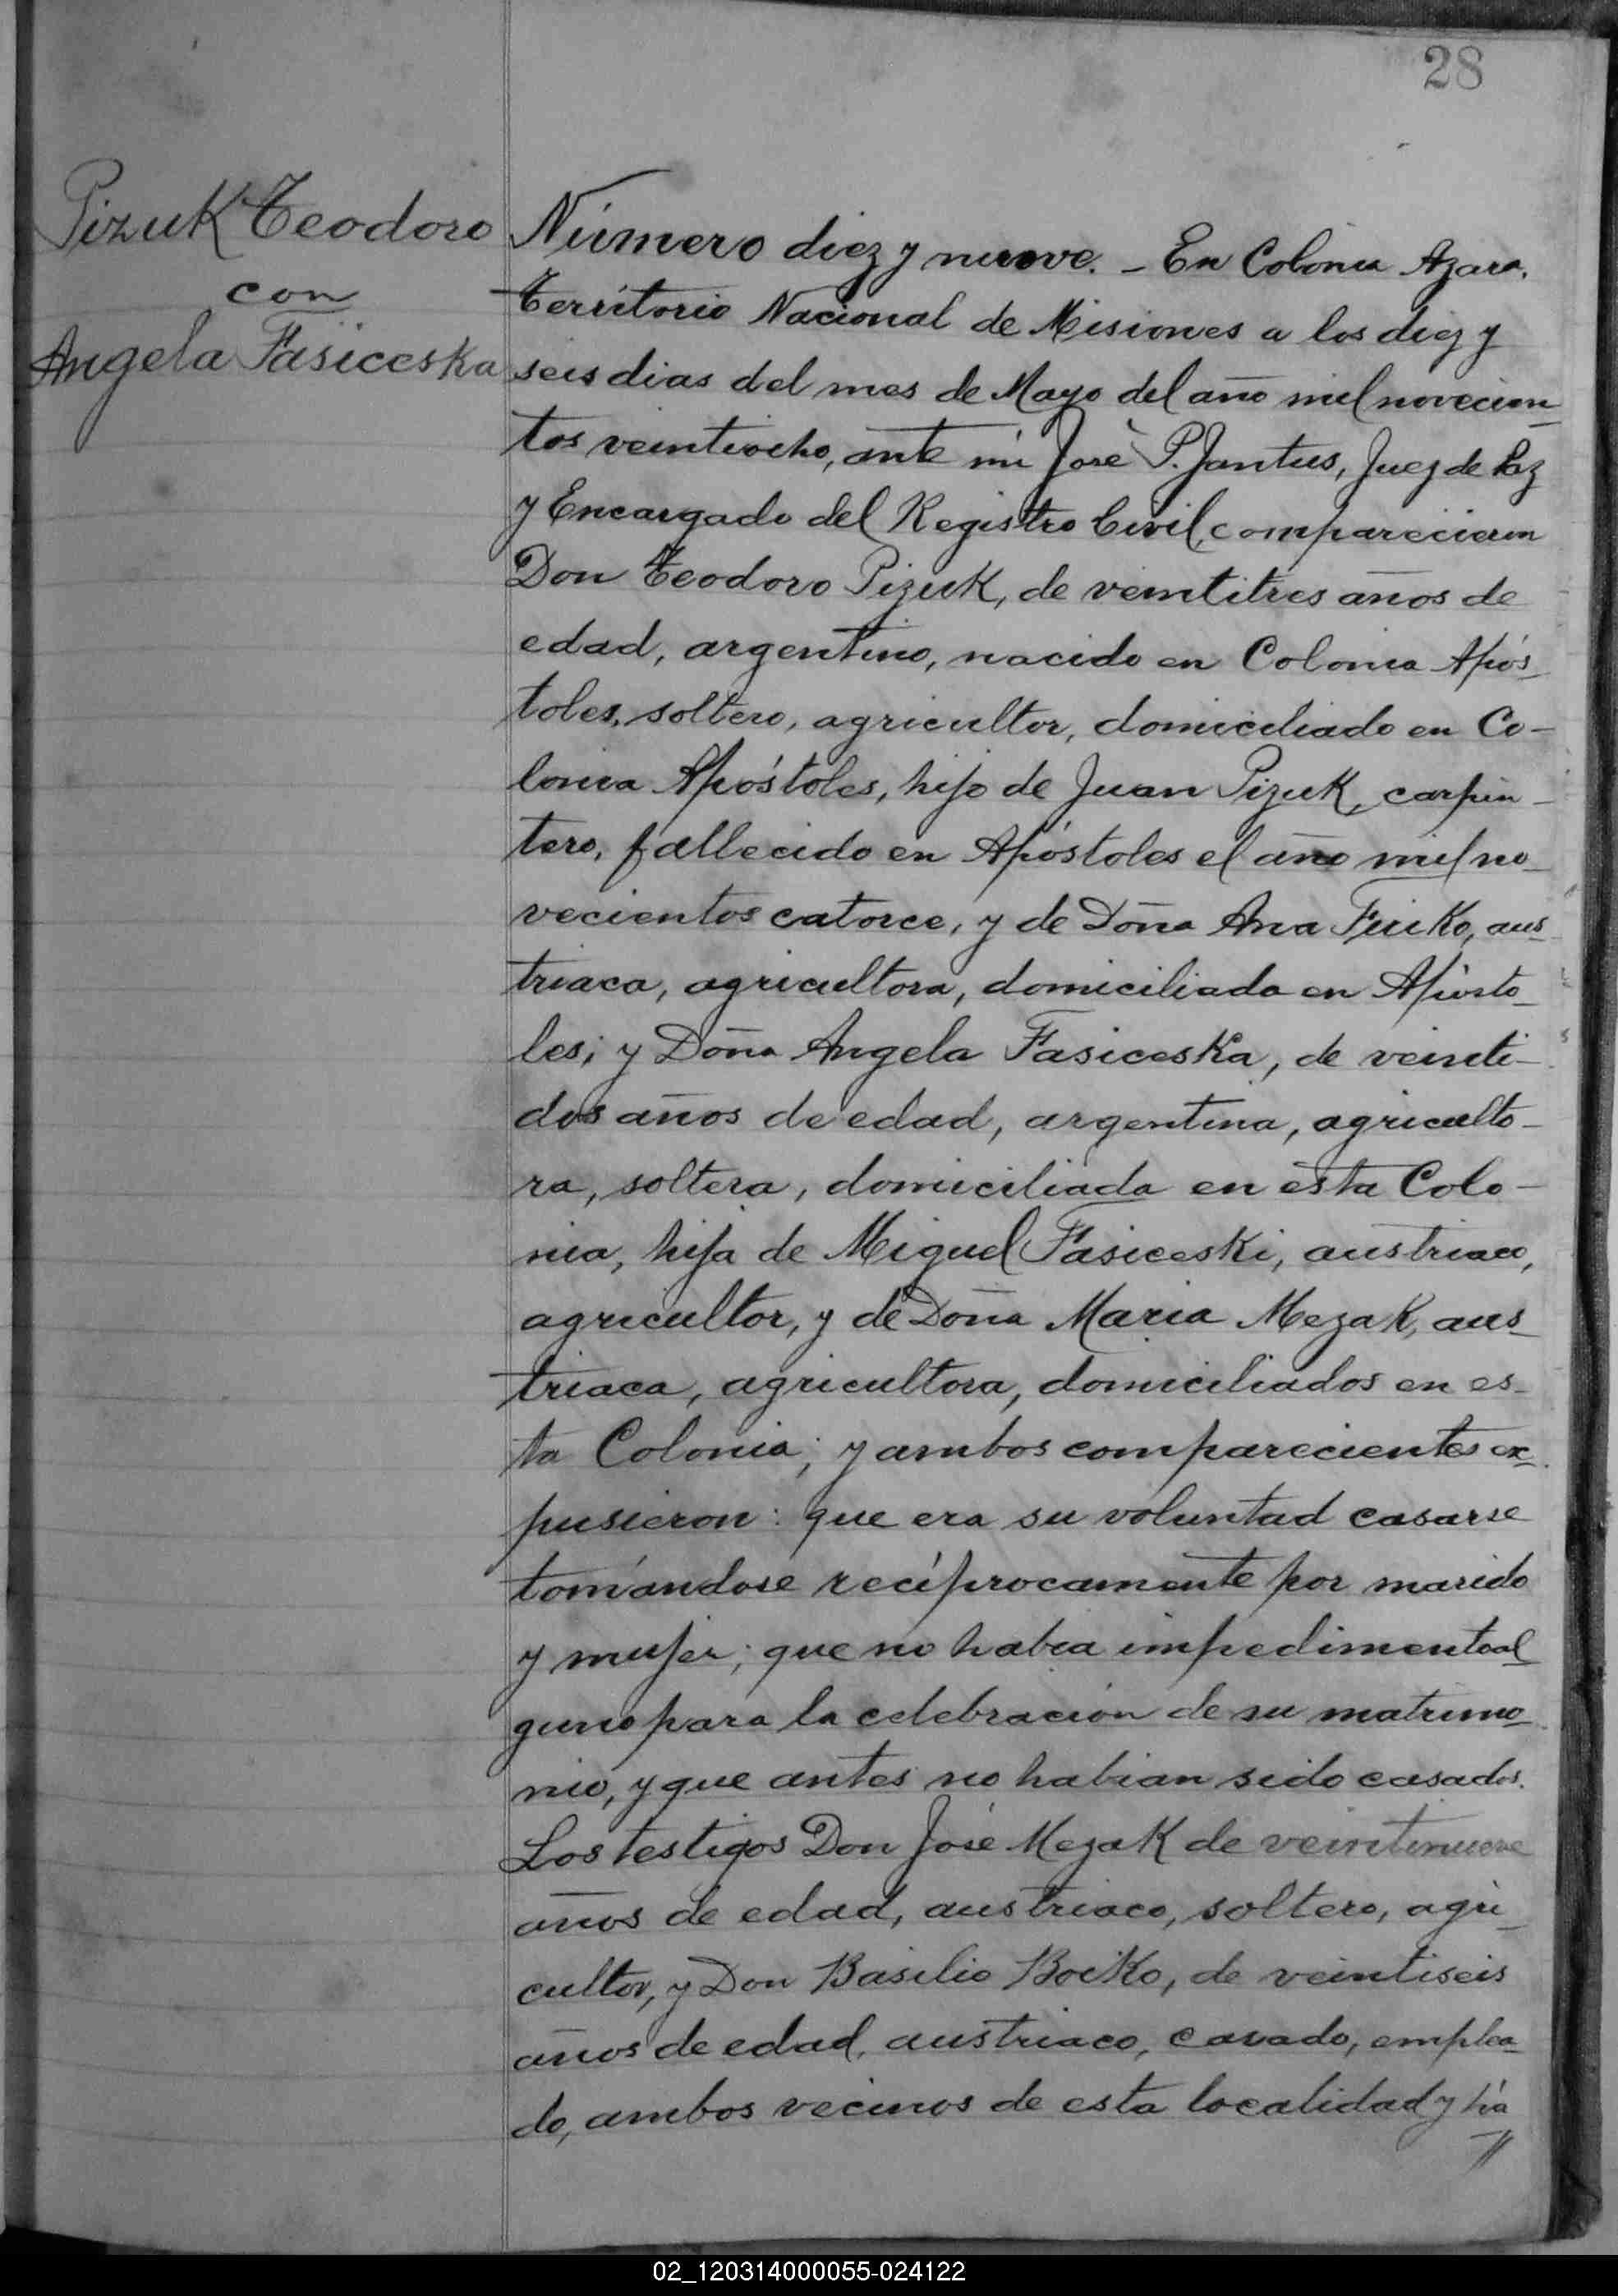 28
Pizuk Teodoro
con
Angela Fasiceska
Número diez y nueve. - En Colonia Azara,
Territorio Nacional de Misiones a los diez y
seis dias del mes de Mayo del año mil novecien-
tos veintiocho, ante mi José P. Jantus, Juez de Paz
y Encargado del Registro Civil, comparecieron
Don Teodoro Pizuk, de veintitres años de
edad, argentino, nacido en Colonia Após-
toles, soltero, agricultor, domiciliado en Co-
lonia Apóstoles, hijo de Juan Pizuk, carpin-
tero, fallecido en Apóstoles el año mil no-
vecientos catorce, y de Doña Ana, aus-
triaca, agricultora, domiciliada en Aposto-
les; y Doña Angela Fasiceska, de veinti-
dos años de edad, argentina, agriculto-
ra, soltera, domiciliada en ésta Colo-
nia, hija de Miguel Fasiceski, austriaco,
agricultor, y de Doña Maria Mezak, aus-
triaca, agricultora, domiciliados en es-
ta Colonia; y ambos comparecientes ex-
pusieron: que era su voluntad casarse
tomándose recíprocamente por marido
y mujer; que no habia impedimento al-
guno para la celebración de su matrimo-
nio, y que antes no habian sido casados.
Los testigos Don José Mezak de veintinueve
años de edad, austriaco, soltero, agri-
cultor, y Don Basilio Boiko, de veintiseis
años de edad, austriaco, casado, emplea-
do, ambos vecinos de esta localidad y há
//
02_120314000055-024122